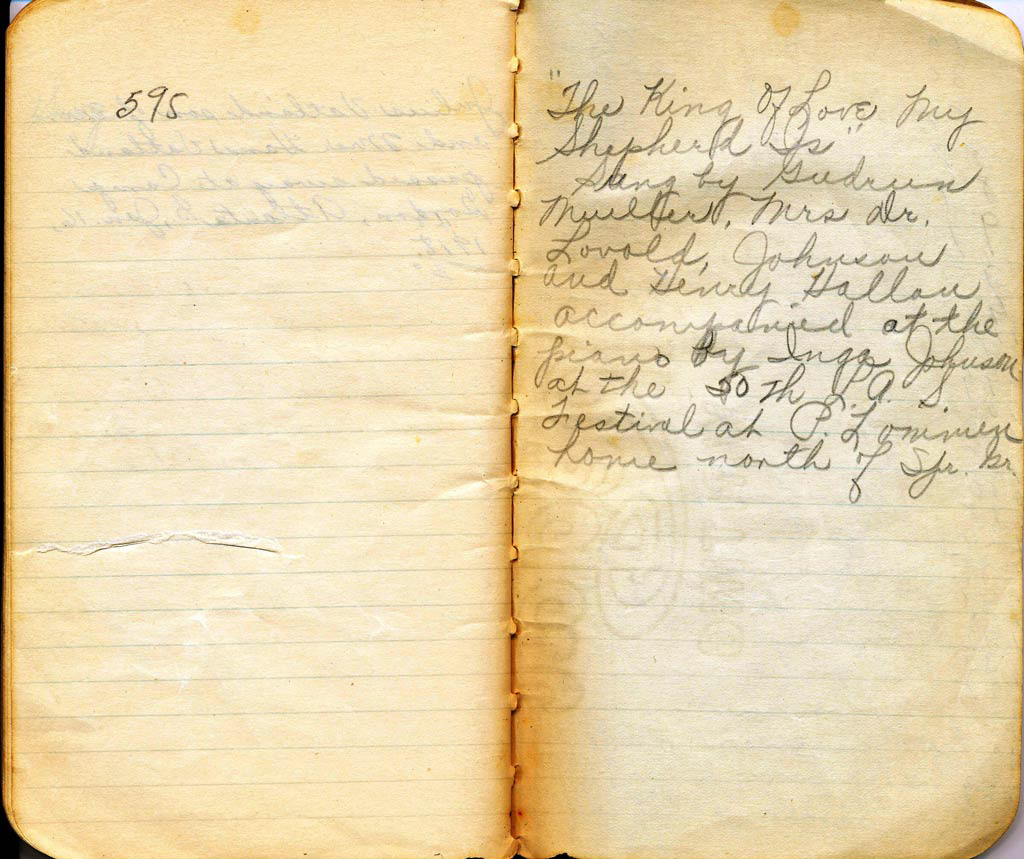 595
"The King Of Love My
Shepherd Is"
Sung by Gudrun
Mueller, Mrs Dr.
Lovold, Johnson
and Henry Hallan
accompanied at the
piano By Inga Johnson
at the 50th L. A. S.
Festival at P. Lommen
home north of Spr. Gr.